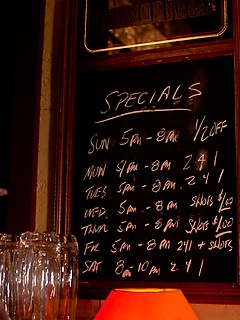 SPECIALS
SUN 5PM - 8PM 1/2 OFF
MON 5PM - 8PM 2 4 1
TUES 5PM - 8PM 2 4 1
WED. 5PM - 8PM SHOTS
THUR 5PM - 8PM SHOTS $1.00
FRI 5PM - 8PM 241 + SHOTS
SAT 8PM 10PM 2 4 1